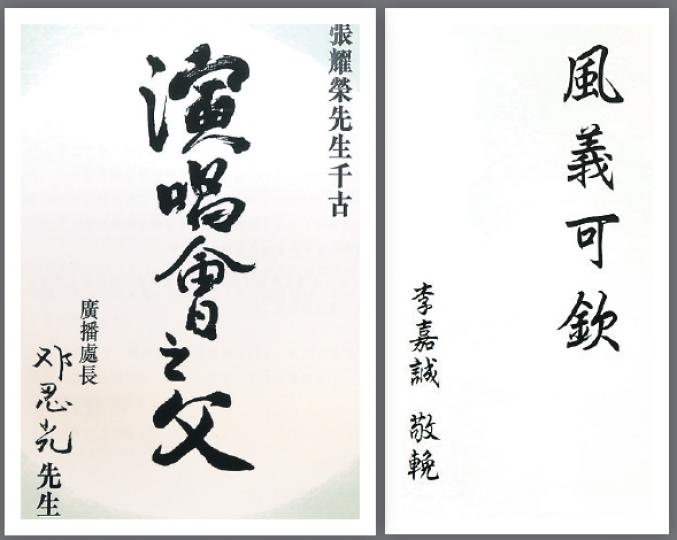 張耀榮先生千古
演唱會之父
廣播處長
邓忍光先生
風義可欽
李嘉誠 敬輓